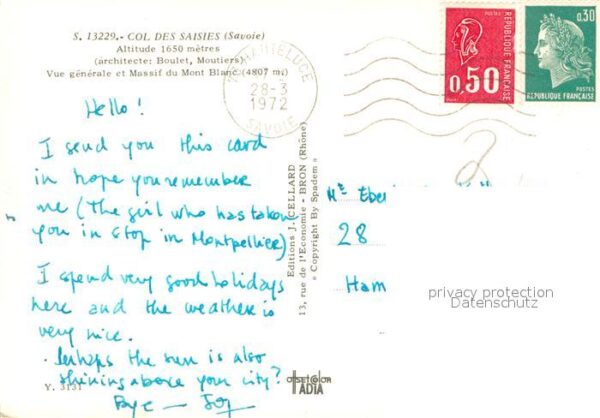 S. 13229.- COL DES SAISIES (Savoie)
Altitude 1650 mètres
(architecte: Boulet, Moutiers)
Vue générale et Massif du Mont Blanc (4807 m)
HAUTELUCE
28-3
1972
SAVOIE
POSTES
RÉPUBLIQUE FRANÇAISE
0,50
0,30
RÉPUBLIQUE FRANÇAISE
Hello!
I send you this card
in hope you remember
me (The girl who has taken
you in stop in Montpellier)
I spend very good holidays
here and the weather is
very nice.
. Perhaps the sun is also
shining above your city?
Bye —
Y. 3131
Editions J. CELLARD
13, rue de l'Economie - BRON (Rhône)
« Copyright By Spadem »
OFFSET COLOR
IADIA
2
Mr Eber
28
Ham
privacy protection
Datenschutz